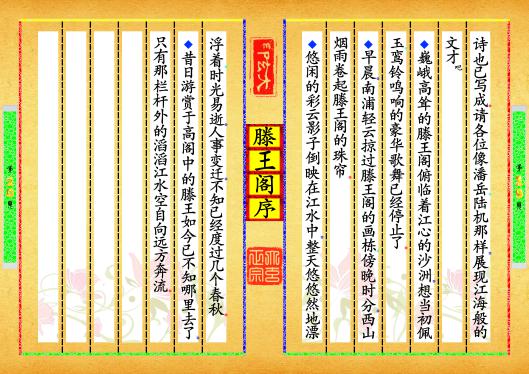 诗也已写成请各位像潘岳陆机那样展现江海般的
文才吧
◆巍峨高耸的滕王阁俯临着江心的沙洲.想当初佩
玉鸾铃鸣响的豪华歌舞已经停止了
◆早晨南浦轻云掠过滕王阁的画栋傍晚时分西山
烟雨卷起滕王阁的珠帘
◆悠闲的彩云影子倒映在江水中.整天悠悠然地漂
滕王阁序
浮着时光易逝人事变迁不知已经度过几个春秋
◆昔日游赏于高阁中的滕王如今已不知哪里去了.
只有那栏杆外的滔滔江水空自向远方奔流